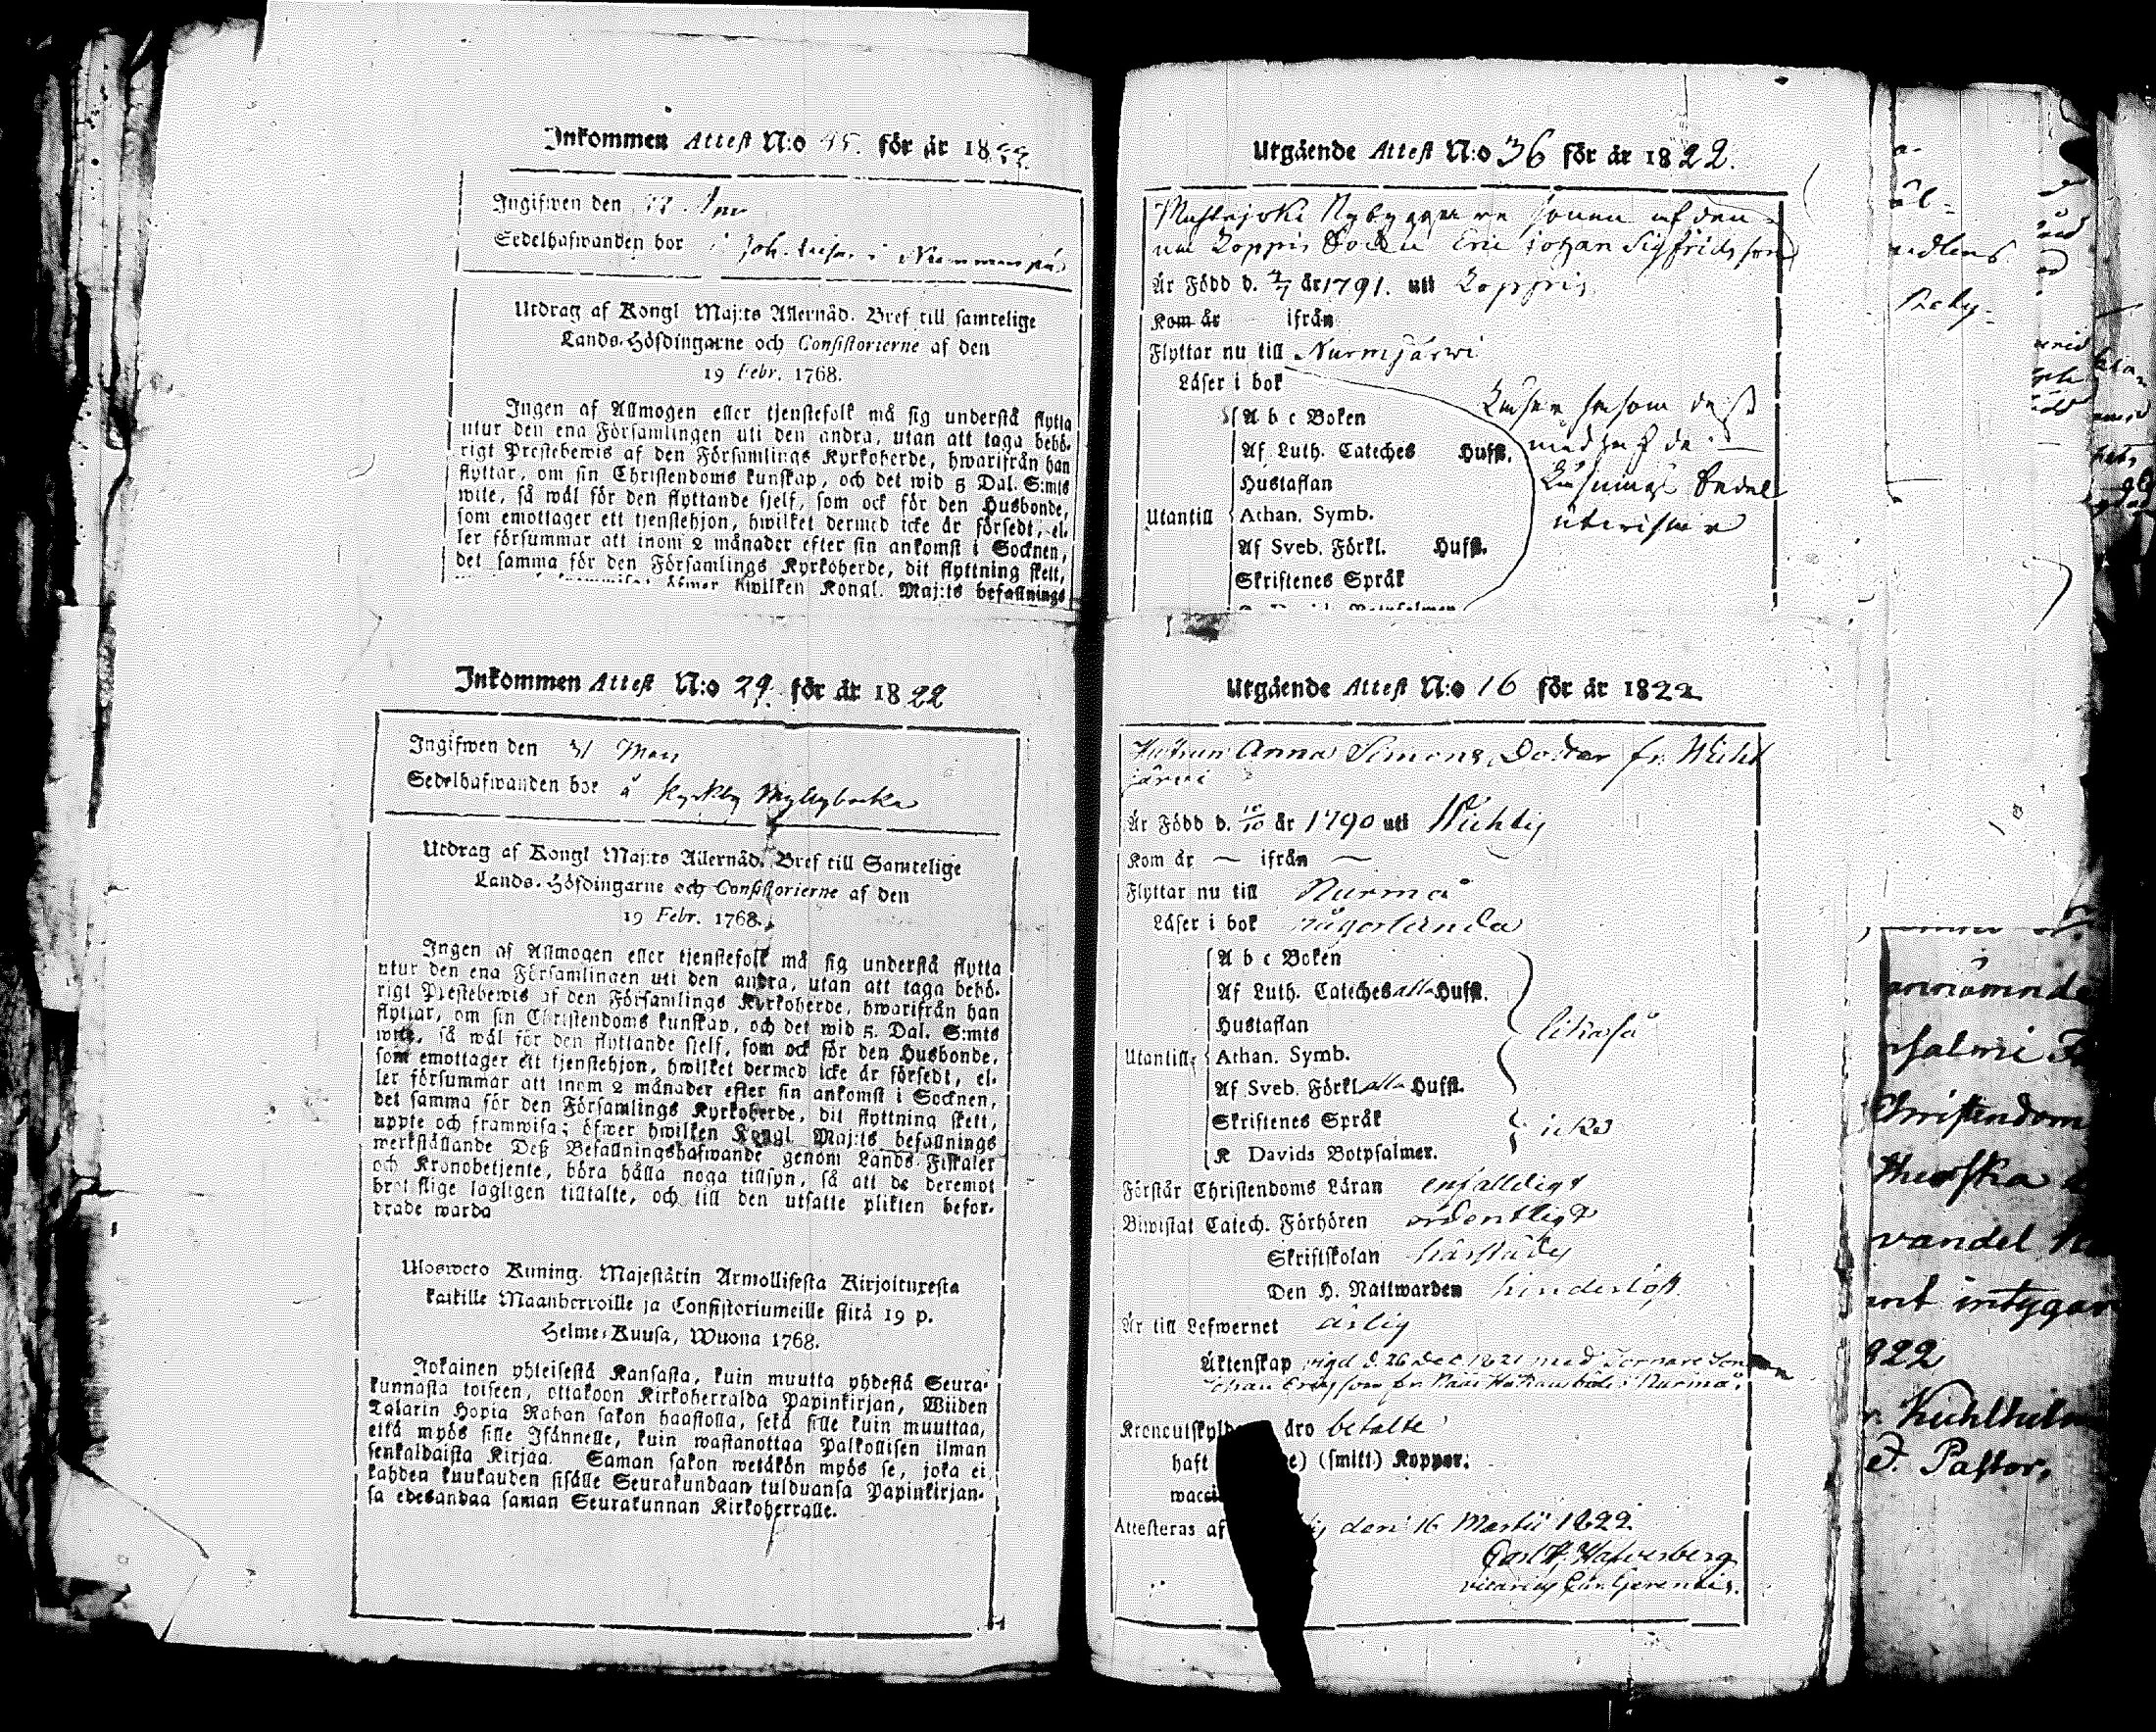 Inkommen Attest N:o 45. för år 1822.
Ingifwen den
Sedelhafwanden bor i
Utdrag af Kongl Maj:ts Allernåd. Bref till samtelige
Lands-Höfdingarne och Consistorierne af den
19 Febr. 1768.
Ingen af Allmogen eller tjenstefolk må sig understå flytta
utur den ena Församlingen uti den andra, utan att taga behö-
rigt Prestebewis af den Församlings Kyrkoherde, hwarifrån han
flyttar, om sin Christendoms kunskap, och det wid 5 Dal. S:mts
wite, så wäl för den flyttande sjelf, som ock för den Husbonde,
som emottager ett tjenstehjon, hwilket dermed icke är försedt, el-
ler försummar att inom 2 månader efter sin ankomst i Socknen,
det samma för den Församlings Kyrkoherde, dit flyttning skett,
öfwer hwilken Kongl. Maj:ts befallnings
Inkommen Attest N:o 29. för år 1822
Ingifwen den 31 Mars
Sedelhafwanden bor å Kyrkby Myllybacka
Utdrag af Kongl Maj:ts Allernåd. Bref till Samtelige
Lands-Höfdingarne och Consistorierne af den
19 Febr. 1768.
Ingen af Allmogen eller tjenstefolk må sig understå flytta
utur den ena Församlingen uti den andra, utan att taga behö-
rigt Prestebewis af den Församlings Kyrkoherde, hwarifrån han
flyttar, om sin Christendoms kunskap, och det wid 5. Dal. S:mts
wite, så wäl för den flyttande sjelf, som ock för den Husbonde,
som emottager ett tjenstehjon, hwilket dermed icke är försedt, el-
ler försummar att inom 2 månader efter sin ankomst i Socknen,
det samma för den Församlings Kyrkoherde, dit flyttning skett,
uppte och framwisa; öfwer hwilken Kongl Maj:ts befallnings
werkställande Deß Befallningshafwande genom Lands-Fiskaler
och Kronobetjente, böra hålla noga tillsyn, så att de deremot
brotslige lagligen tilltalte, och till den utsatte plikten befor-
drade warda
Ulosweto Kuning. Majestätin Armollisesta Kirjoituxesta
kaikille Maanherroille ja Consistoriumeille siitä 19 p.
Helme-Kuusa, Wuona 1768.
Jokainen yhteisestä Kansasta, kuin muutta yhdestä Seura-
kunnasta toiseen, ottakoon Kirkoherralda Papinkirjan, Wiiden
Talarin Hopia Rahan sakon haastolla, sekä sille kuin muuttaa,
että myös sille Isännelle, kuin wastanottaa Palkollisen ilman
senkaldaista Kirjaa. Saman sakon wetäkön myös se, joka ei
kahden kuukauden sisälle Seurakundaan tulduansa Papinkirjan-
sa edesandaa saman Seurakunnan Kirkoherralle.
Utgående Attest N:o 36 för år 1822.
Nybyggare sonen af den
Loppis Socken Eric Johan Sigfridsson
Är Född d. 2/7 år 1791. uti Loppis
Kom år ifrån
Flyttar nu till Nurmijärwi
Läser i bok
A b c Boken
Af Luth. Cateches Hufst.
Hustaflan
Utantill Athan. Symb.
Af Sveb. Förkl. Hufst.
Skriftenes Språk
Läser såsom deß
Läsnings Sedel
utwisar
Utgående Attest N:o 16 för år 1822
Hustrun Anna Simons Dotter fr. Wicht
järwi
Är Född d. 10/10 år 1790 uti Wichtis
Kom år — ifrån —
Flyttar nu till Nurmå
Läser i bok någorlunda
A b c Boken
Af Luth. Cateches alla Hufst.
Hustaflan
likaså
Utantill Athan. Symb.
Af Sveb. Förkl alla Hufst.
Skriftenes Språk
icke
K Davids Botpsalmer.
Förstår Christendoms Läran enfalldigt
Biwistat Catech. Förhören ordentligt
Skriftskolan härstädes
Den H. Nattwarden hinderlöst
Är till Lefwernet ärlig
Äktenskap wigd d. 26 Dec. 1821 med
Johan Ericsson fr. i Nurmå.
Kronoutskylder betalte
haft (smitt) Koppor.
Attesteras af den 16 Martii 1822.
Carl H. Hafverberg
vicarius Cur. Gerentis.
Christendom
vandel
intygar
822
Pastor.